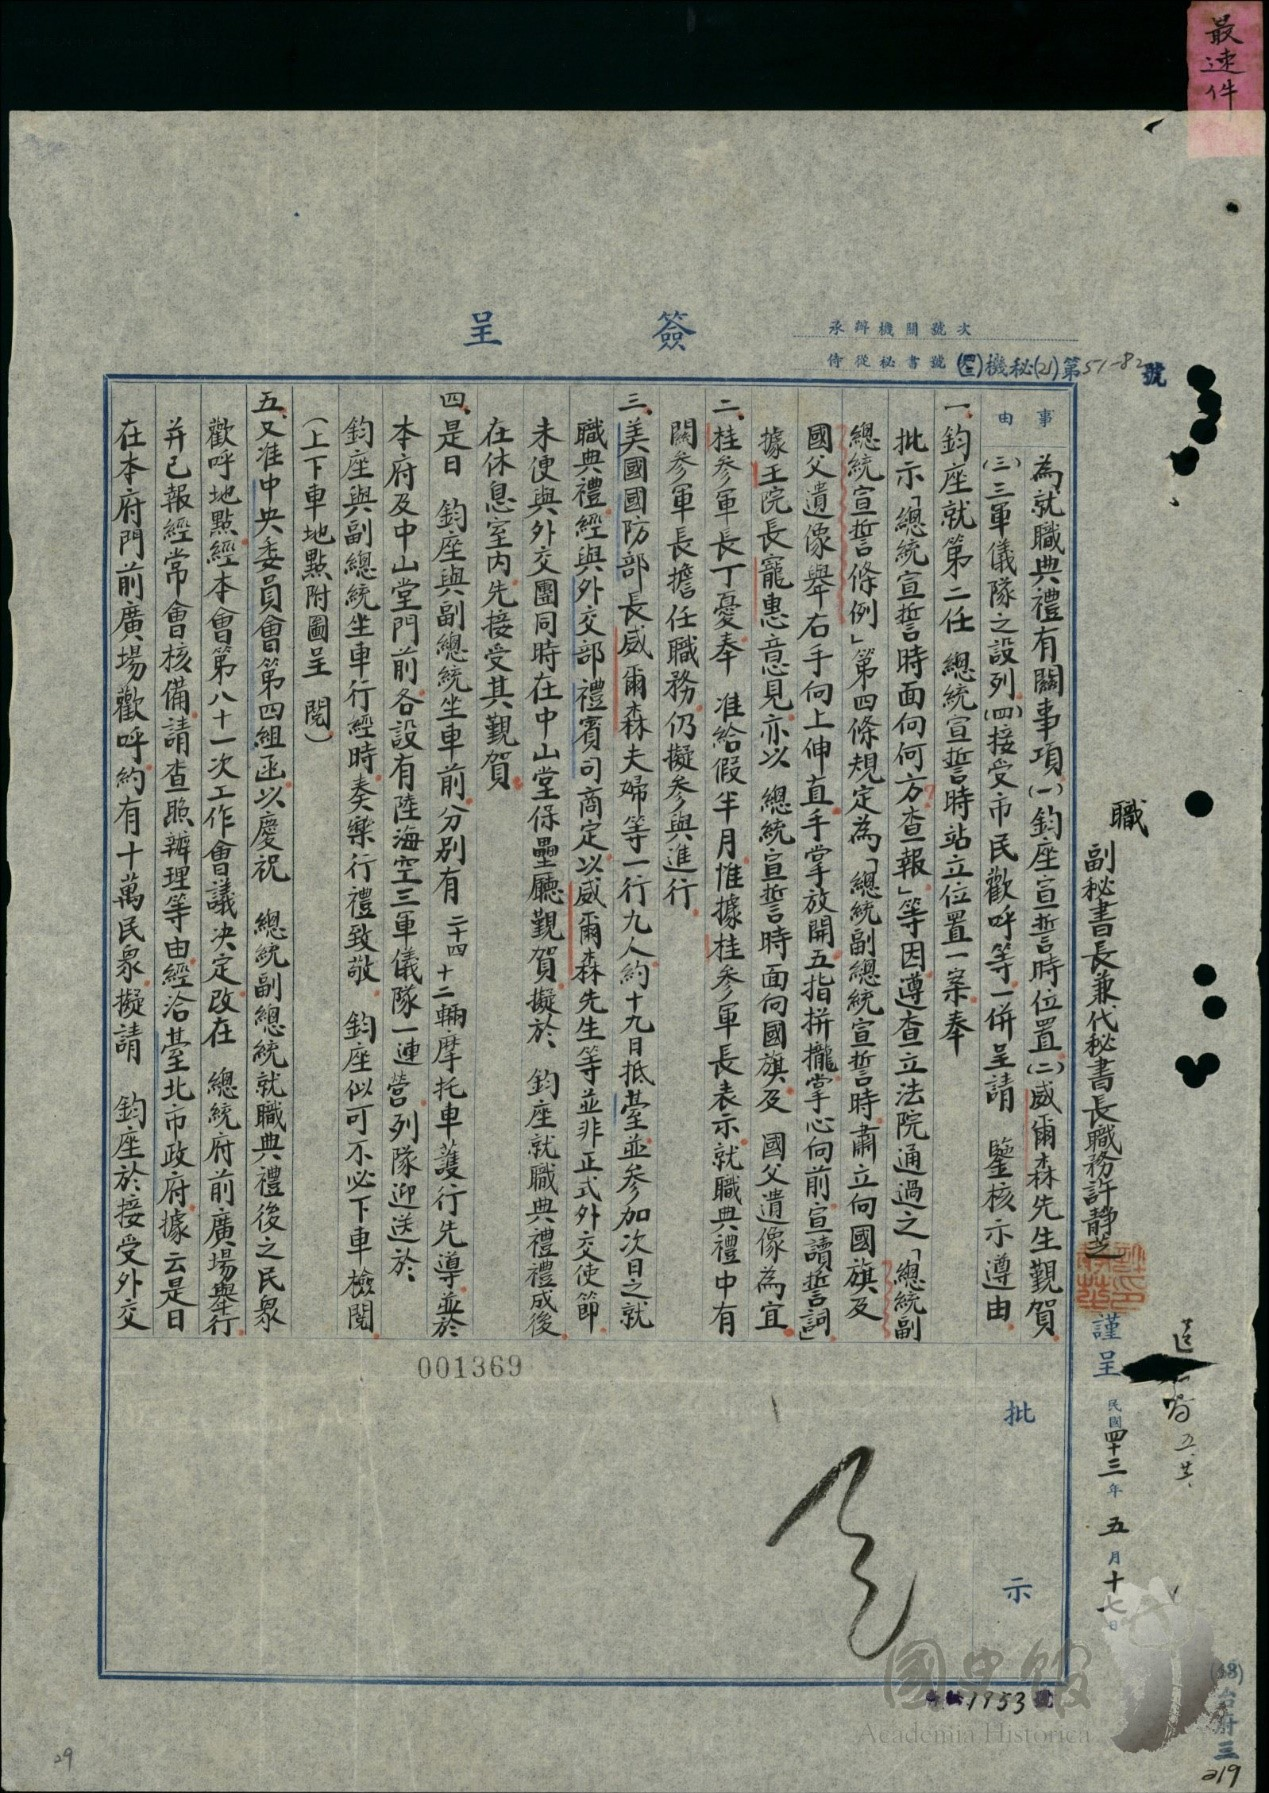 最速件
簽呈
承辦機關號次
侍從秘書號 機秘(21)第51-82號
職
副秘書長兼代秘書長職務許靜芝
謹呈
民國四十三年五月十七日
事由
為就職典禮有關事項(一)鈞座宣誓時位置(二)威爾森先生覲賀
(三)三軍儀隊之設列(四)接受市民歡呼等一併呈請 鑒核示遵由
一、鈞座就第二任 總統宣誓時站立位置一案奉
批示「總統宣誓時面向何方查報」等因遵查立法院通過之「總統副
總統宣誓條例」第四條規定為「總統副總統宣誓時肅立向國旗及
國父遺像舉右手向上伸直手掌放開五指拼攏掌心向前宣讀誓詞」
據王院長寵惠意見亦以 總統宣誓時面向國旗及 國父遺像為宜
二、桂參軍長丁憂奉 准給假半月惟據桂參軍長表示就職典禮中有
關參軍長擔任職務仍擬參與進行
三、美國國防部長威爾森夫婦等一行九人約十九日抵臺並參加次日之就
職典禮經與外交部禮賓司商定以威爾森先生等並非正式外交使節
未便與外交團同時在中山堂保壘廳覲賀擬於 鈞座就職典禮禮成後
在休息室內先接受其覲賀
四、是日 鈞座與副總統坐車前分別有二十四十二輛摩托車護行先導並於
本府及中山堂門前各設有陸海空三軍儀隊一連營列隊迎送於
鈞座與副總統坐車行經時奏樂行禮致敬 鈞座似可不必下車檢閱
(上下車地點附圖呈 閱)
五、又准中央委員會第四組函以慶祝 總統副總統就職典禮後之民眾
歡呼地點經本會第八十一次工作會議決定改在 總統府前廣場舉行
并已報經常會核備請查照辦理等由經洽臺北市政府據云是日
在本府門前廣場歡呼約有十萬民眾擬請 鈞座於接受外交
001369
批示
1953號
國史館
Academia Historica
(68)台府三
219
29